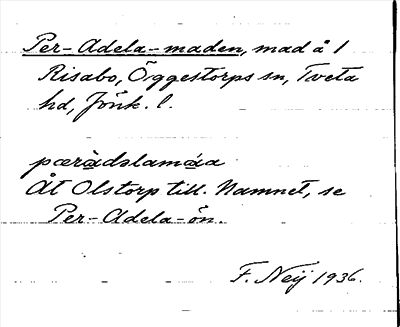 Per-Adela-maden, mad å 1
Risabo, Öggestorps sn, Tveta
hd, Jönk. l.
pæràdəlamáa
Åt Olstorp till. Namnet, se
Per-Adela-ön.
F. Neij 1936.